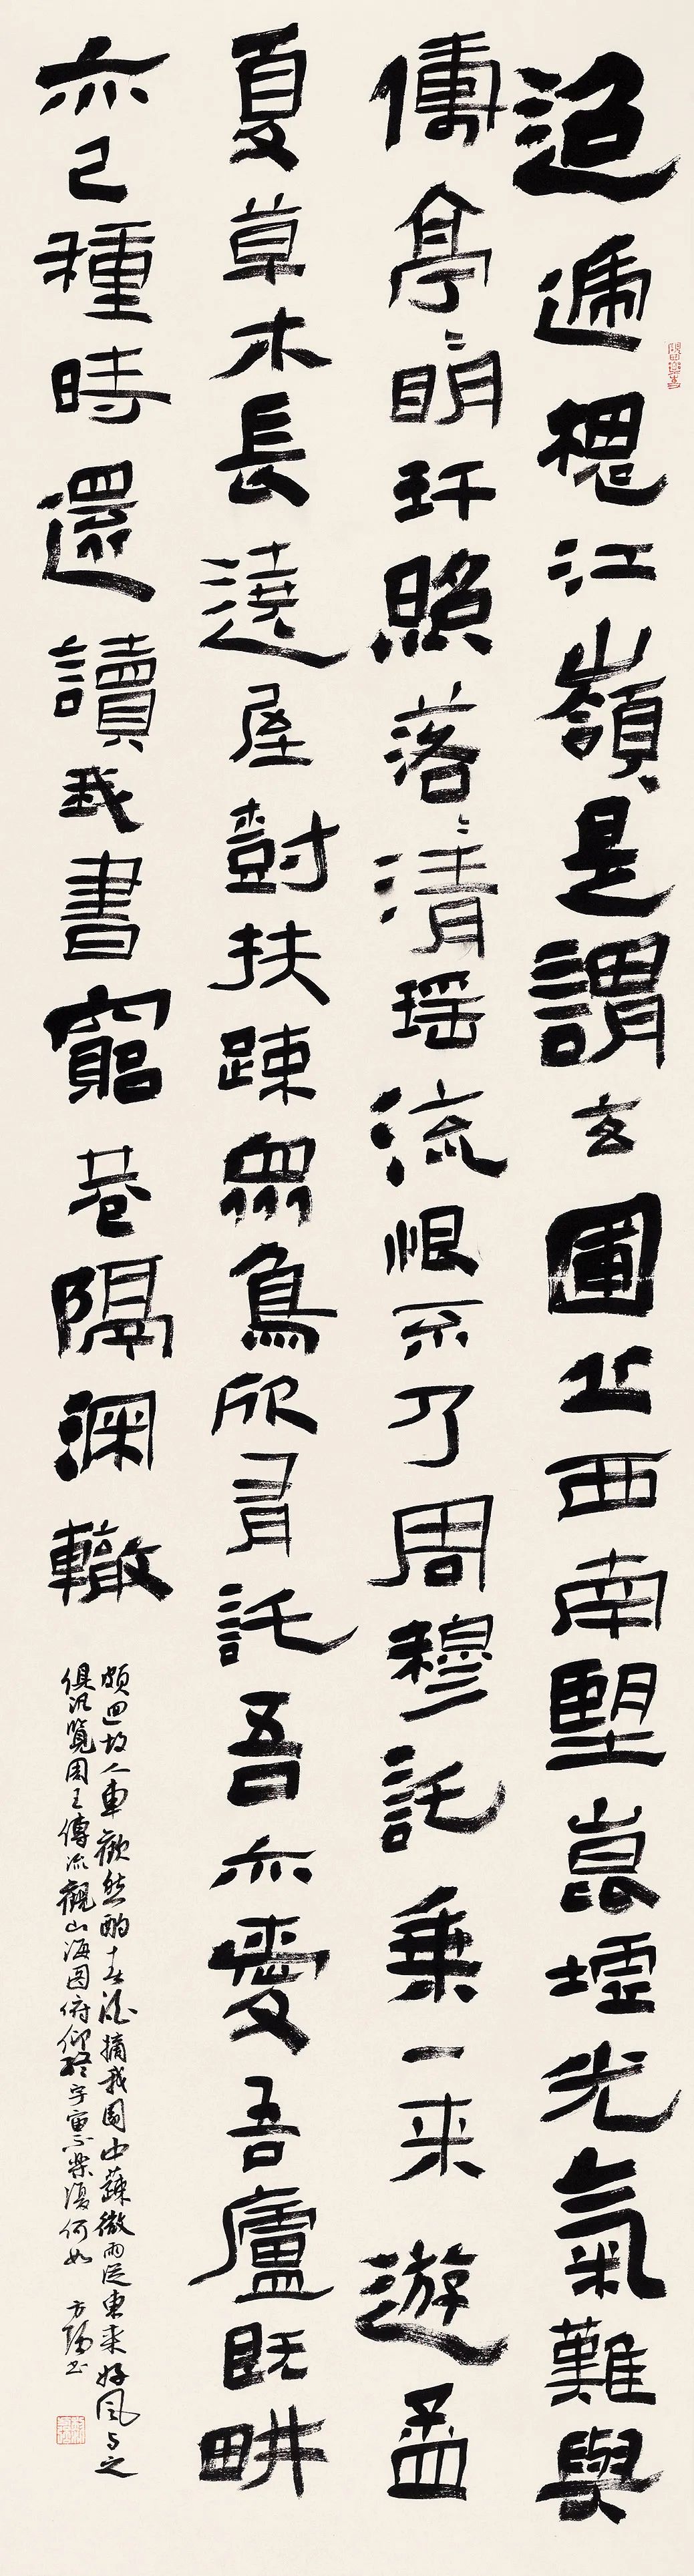 迢遞槐江嶺是謂玄圃丘西南望崑墟光氣難與
儔亭〻明玕照落〻清瑶流恨不及周穆託乗一来遊孟
夏草木長遶屋樹扶踈衆鳥欣有託吾亦愛吾廬既畊
亦已種時還讀我書窮巷隔深轍
頗迴故人車歡然酌春酒摘我園中蔬微雨從東来好風与之
俱汎覽周王傳流觀山海圖俯仰終宇宙不樂復何如 方 书